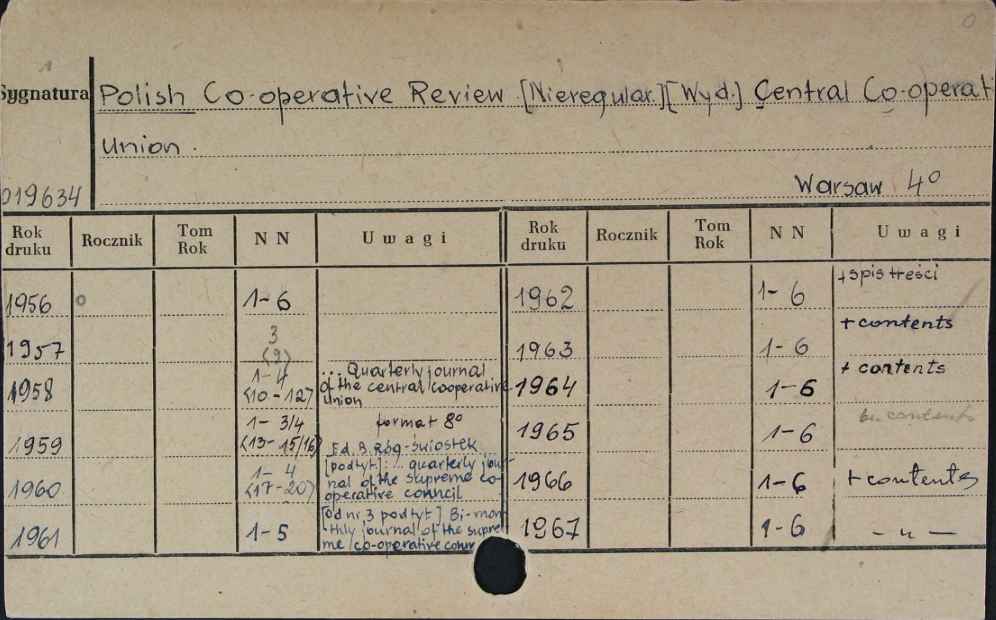 Sygnatura Polish Co-operative Review [Nieregular.] [Wyd.] Central Co-operati
Union.
019634 Warsaw 4°
Rok druku Rocznik Tom Rok N N Uwagi Rok druku Rocznik Tom Rok N N Uwagi
1956 1-6
1957 3 <9>
1958 1-4 <10-12> ... Quarterly journal of the central cooperative union
1959 1-3/4 <13-15/16> format 8° Ed. B. Róg-Świostek
1960 1-4 <17-20> [podtyt.]: .. quarterly journal of the supreme co-operative council
1961 1-5 [od nr 3 podtyt.] Bi-monthly journal of the supreme co-operative
1962 1-6 + spis treści
1963 1-6 + contents
1964 1-6 + contents
1965 1-6 contents
1966 1-6 + contents
1967 1-6 - " -